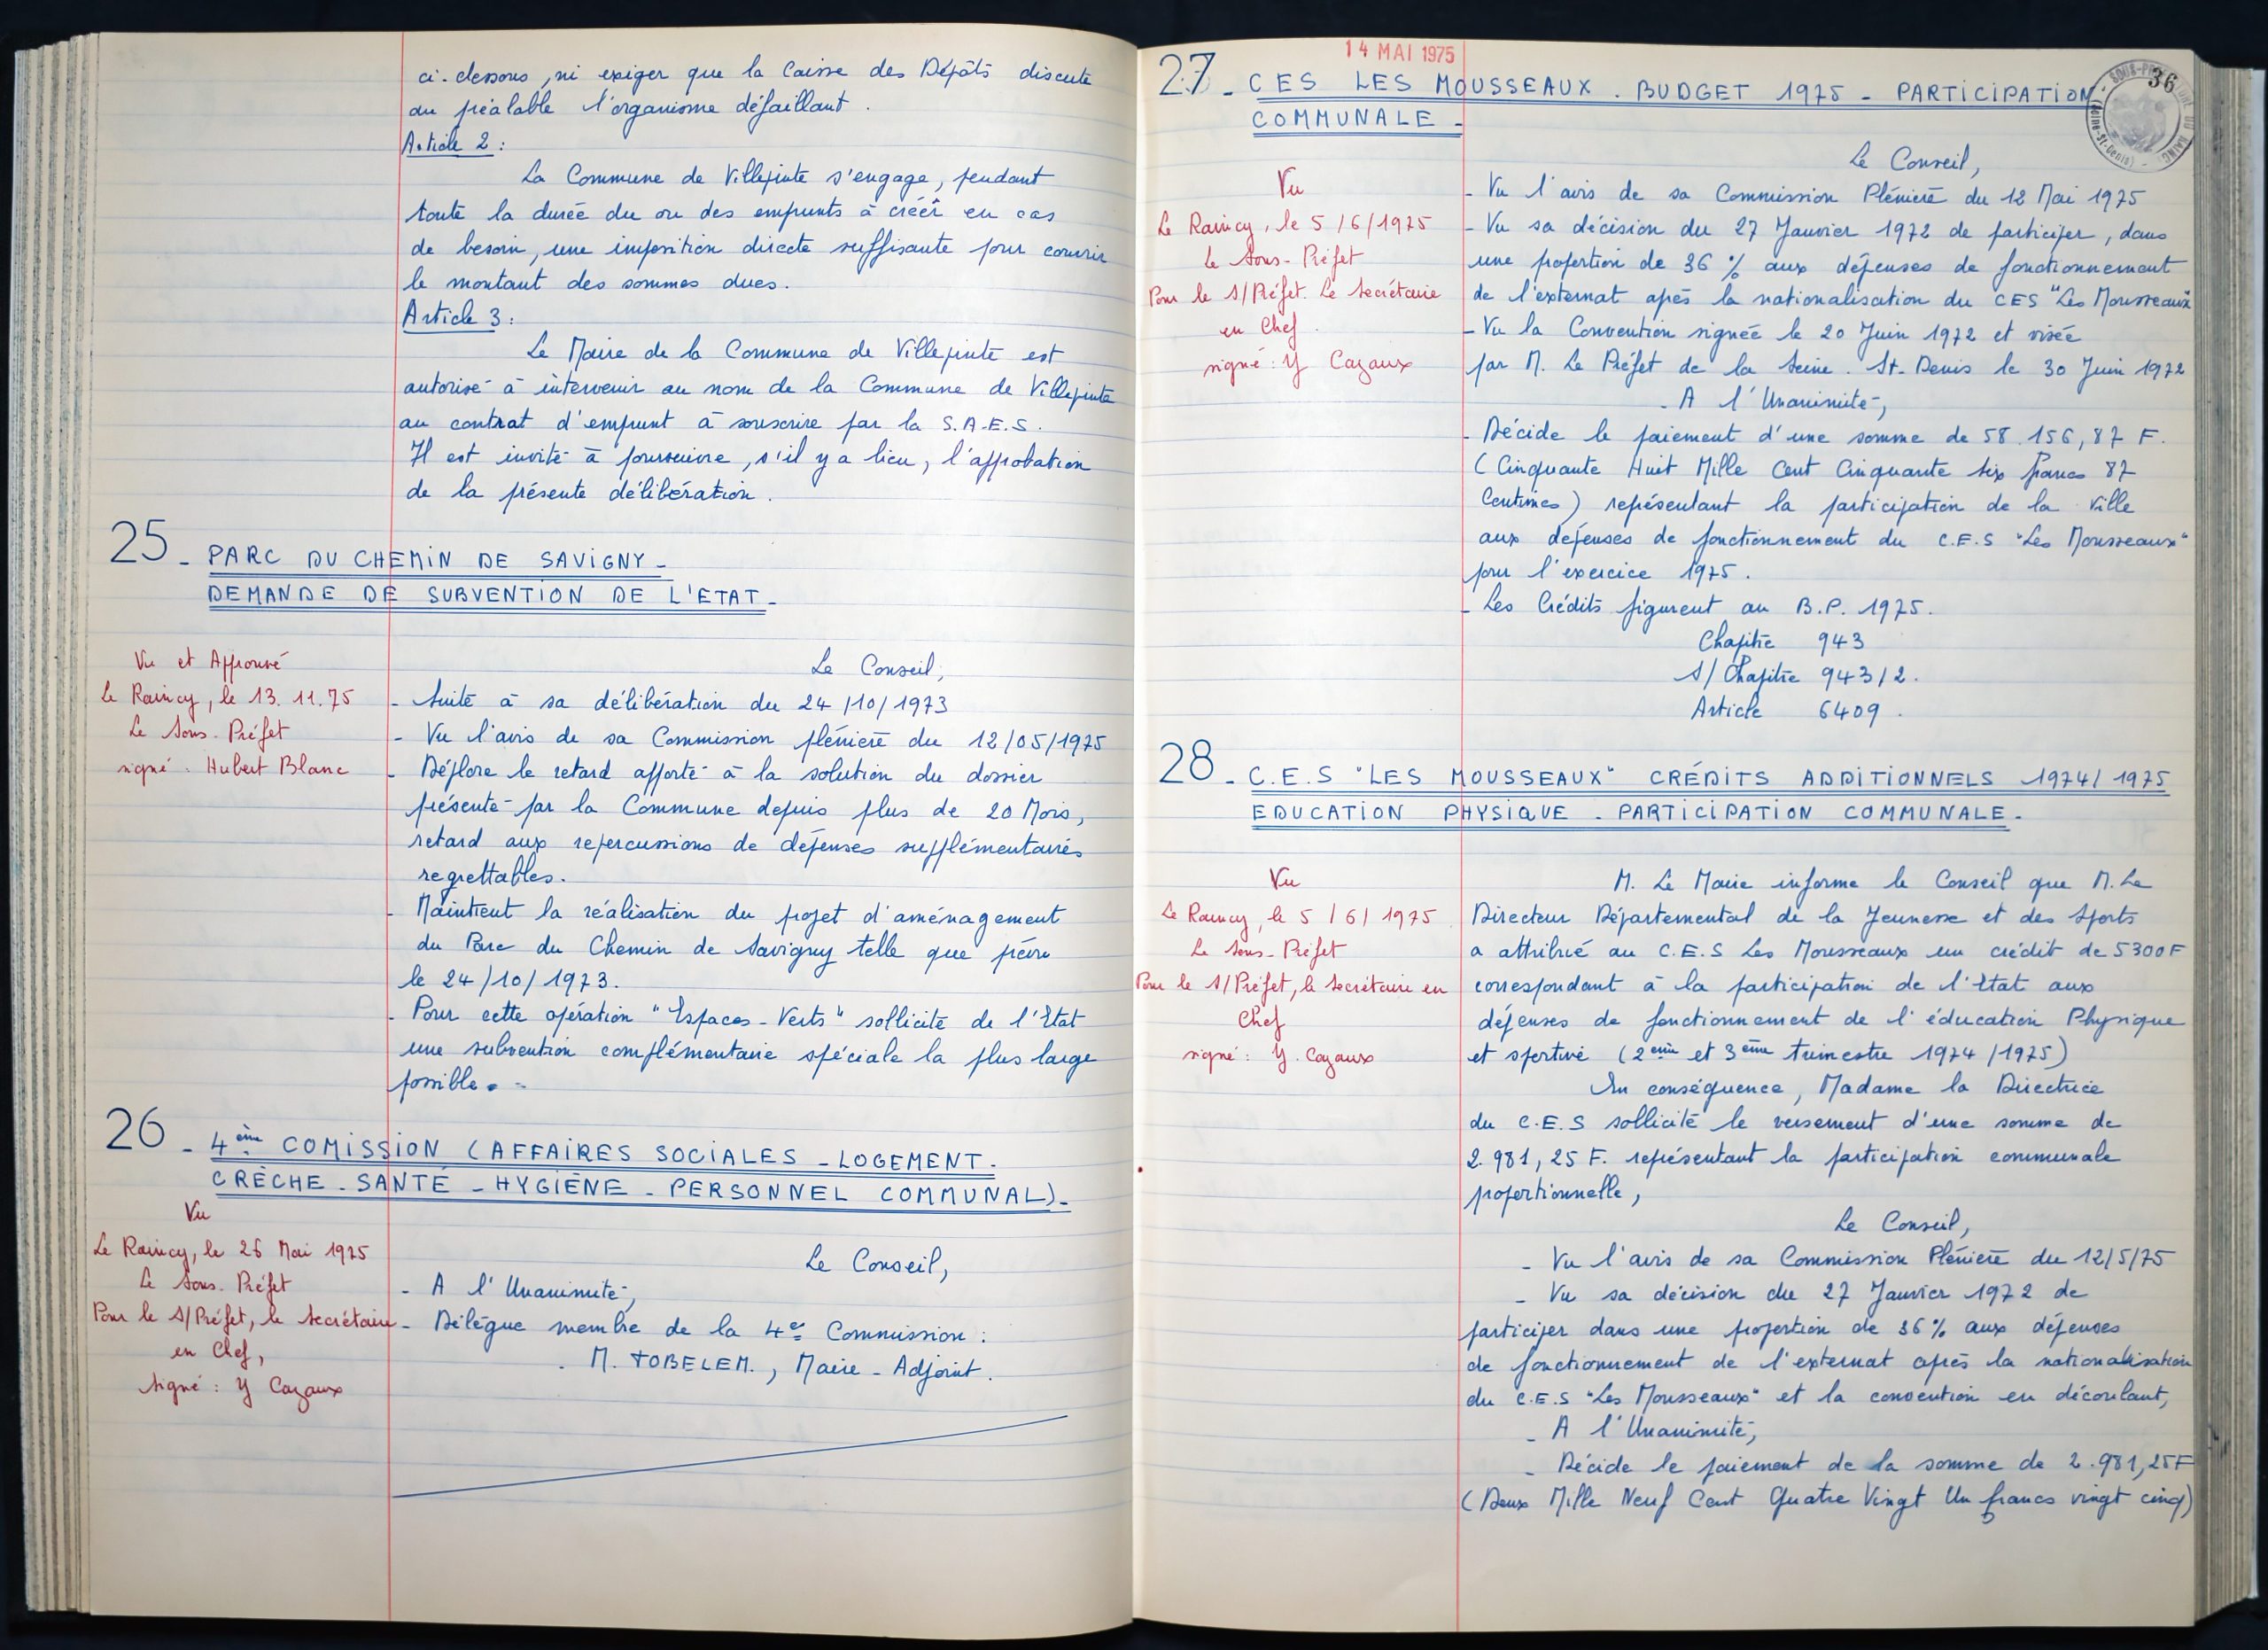 ci-dessous, ni exiger que la Caisse des Dépôts discute
au préalable l'organisme défaillant.
Article 2 :
La Commune de Villepinte s'engage, pendant
toute la durée du ou des emprunts à créér en cas
de besoin, une imposition directe suffisante pour couvrir
le montant des sommes dues.
Article 3 :
Le Maire de la Commune de Villepinte est
autorisé à intervenir au nom de la Commune de Villepinte
au contrat d'emprunt à souscrire par la S.A.E.S.
Il est invité à poursuivre, s'il y a lieu, l'approbation
de la présente délibération.
25 - PARC DU CHEMIN DE SAVIGNY -
DEMANDE DE SUBVENTION DE L'ETAT -
Vu et Approuvé
Le Raincy, le 13.11.75
Le Sous-Préfet
signé : Hubert Blanc
Le Conseil,
- Suite à sa délibération du 24/10/1973
- Vu l'avis de sa Commission plénière du 12/05/1975
- Déplore le retard apporté à la solution du dossier
présenté par la Commune depuis plus de 20 Mois,
retard aux repercussions de dépenses supplémentaires
regrettables.
- Maintient la réalisation du projet d'aménagement
du Parc du Chemin de Savigny telle que prévu
le 24/10/1973.
- Pour cette opération "Espaces-Verts" sollicite de l'Etat
une subvention complémentaire spéciale la plus large
possible. -
26 - 4ème COMISSION (AFFAIRES SOCIALES - LOGEMENT -
CRÈCHE - SANTÉ - HYGIÈNE - PERSONNEL COMMUNAL) -
Vu
Le Raincy, le 26 Mai 1975
Le Sous-Préfet
Pour le S/Préfet, le Secrétaire
en Chef,
signé : Y Cazaux
Le Conseil,
- A l'Unanimité,
- Délègue membre de la 4e Commission :
- M. TOBELEM., Maire-Adjoint.
14 MAI 1975
36
27 - CES LES MOUSSEAUX - BUDGET 1975 - PARTICIPATION
COMMUNALE -
Vu
Le Raincy, le 5/6/1975
Le Sous-Préfet
Pour le S/Préfet. Le Secrétaire
en Chef.
signé : Y Cazaux
Le Conseil,
- Vu l'avis de sa Commission Plénière du 12 Mai 1975
- Vu sa décision du 27 Janvier 1972 de participer, dans
une proportion de 36 % aux dépenses de fonctionnement
de l'externat après la nationalisation du CES "Les Mousseaux
- Vu la Convention signée le 20 Juin 1972 et visée
par M. Le Préfet de la Seine-St-Denis le 30 Juin 1972
- A l'Unanimité,
- Décide le paiement d'une somme de 58.156,87 F.
(Cinquante Huit Mille Cent Cinquante Six francs 87
Centimes) représentant la participation de la Ville
aux dépenses de fonctionnement du C.E.S "Les Mousseaux"
pour l'exercice 1975.
- Les Crédits figurent au B.P. 1975.
Chapitre 943
S/Chapitre 943/2.
Article 6409.
28 - C.E.S "LES MOUSSEAUX" CRÉDITS ADDITIONNELS 1974/1975
EDUCATION PHYSIQUE - PARTICIPATION COMMUNALE -
Vu
Le Raincy, le 5/6/1975
Le Sous-Préfet
Pour le S/Préfet, le Secrétaire en
Chef
signé : Y. Cazaux
M. Le Maire informe le Conseil que M. Le
Directeur Départemental de la Jeunesse et des Sports
a attribué au C.E.S Les Mousseaux un crédit de 5300F
correspondant à la participation de l'Etat aux
dépenses de fonctionnement de l'éducation Physique
et sportive (2ème et 3ème trimestre 1974/1975)
En conséquence, Madame la Directrice
du C.E.S sollicite le versement d'une somme de
2.981,25 F. représentant la participation communale
proportionnelle,
Le Conseil,
- Vu l'avis de sa Commission Plénière du 12/5/75
- Vu sa décision du 27 Janvier 1972 de
participer dans une proportion de 36% aux dépenses
de fonctionnement de l'externat après la nationalisation
du C.E.S "Les Mousseaux" et la convention en découlant,
- A l'Unanimité,
- Décide le paiement de la somme de 2.981,25F
(Deux Mille Neuf Cent Quatre Vingt Un francs vingt cinq)